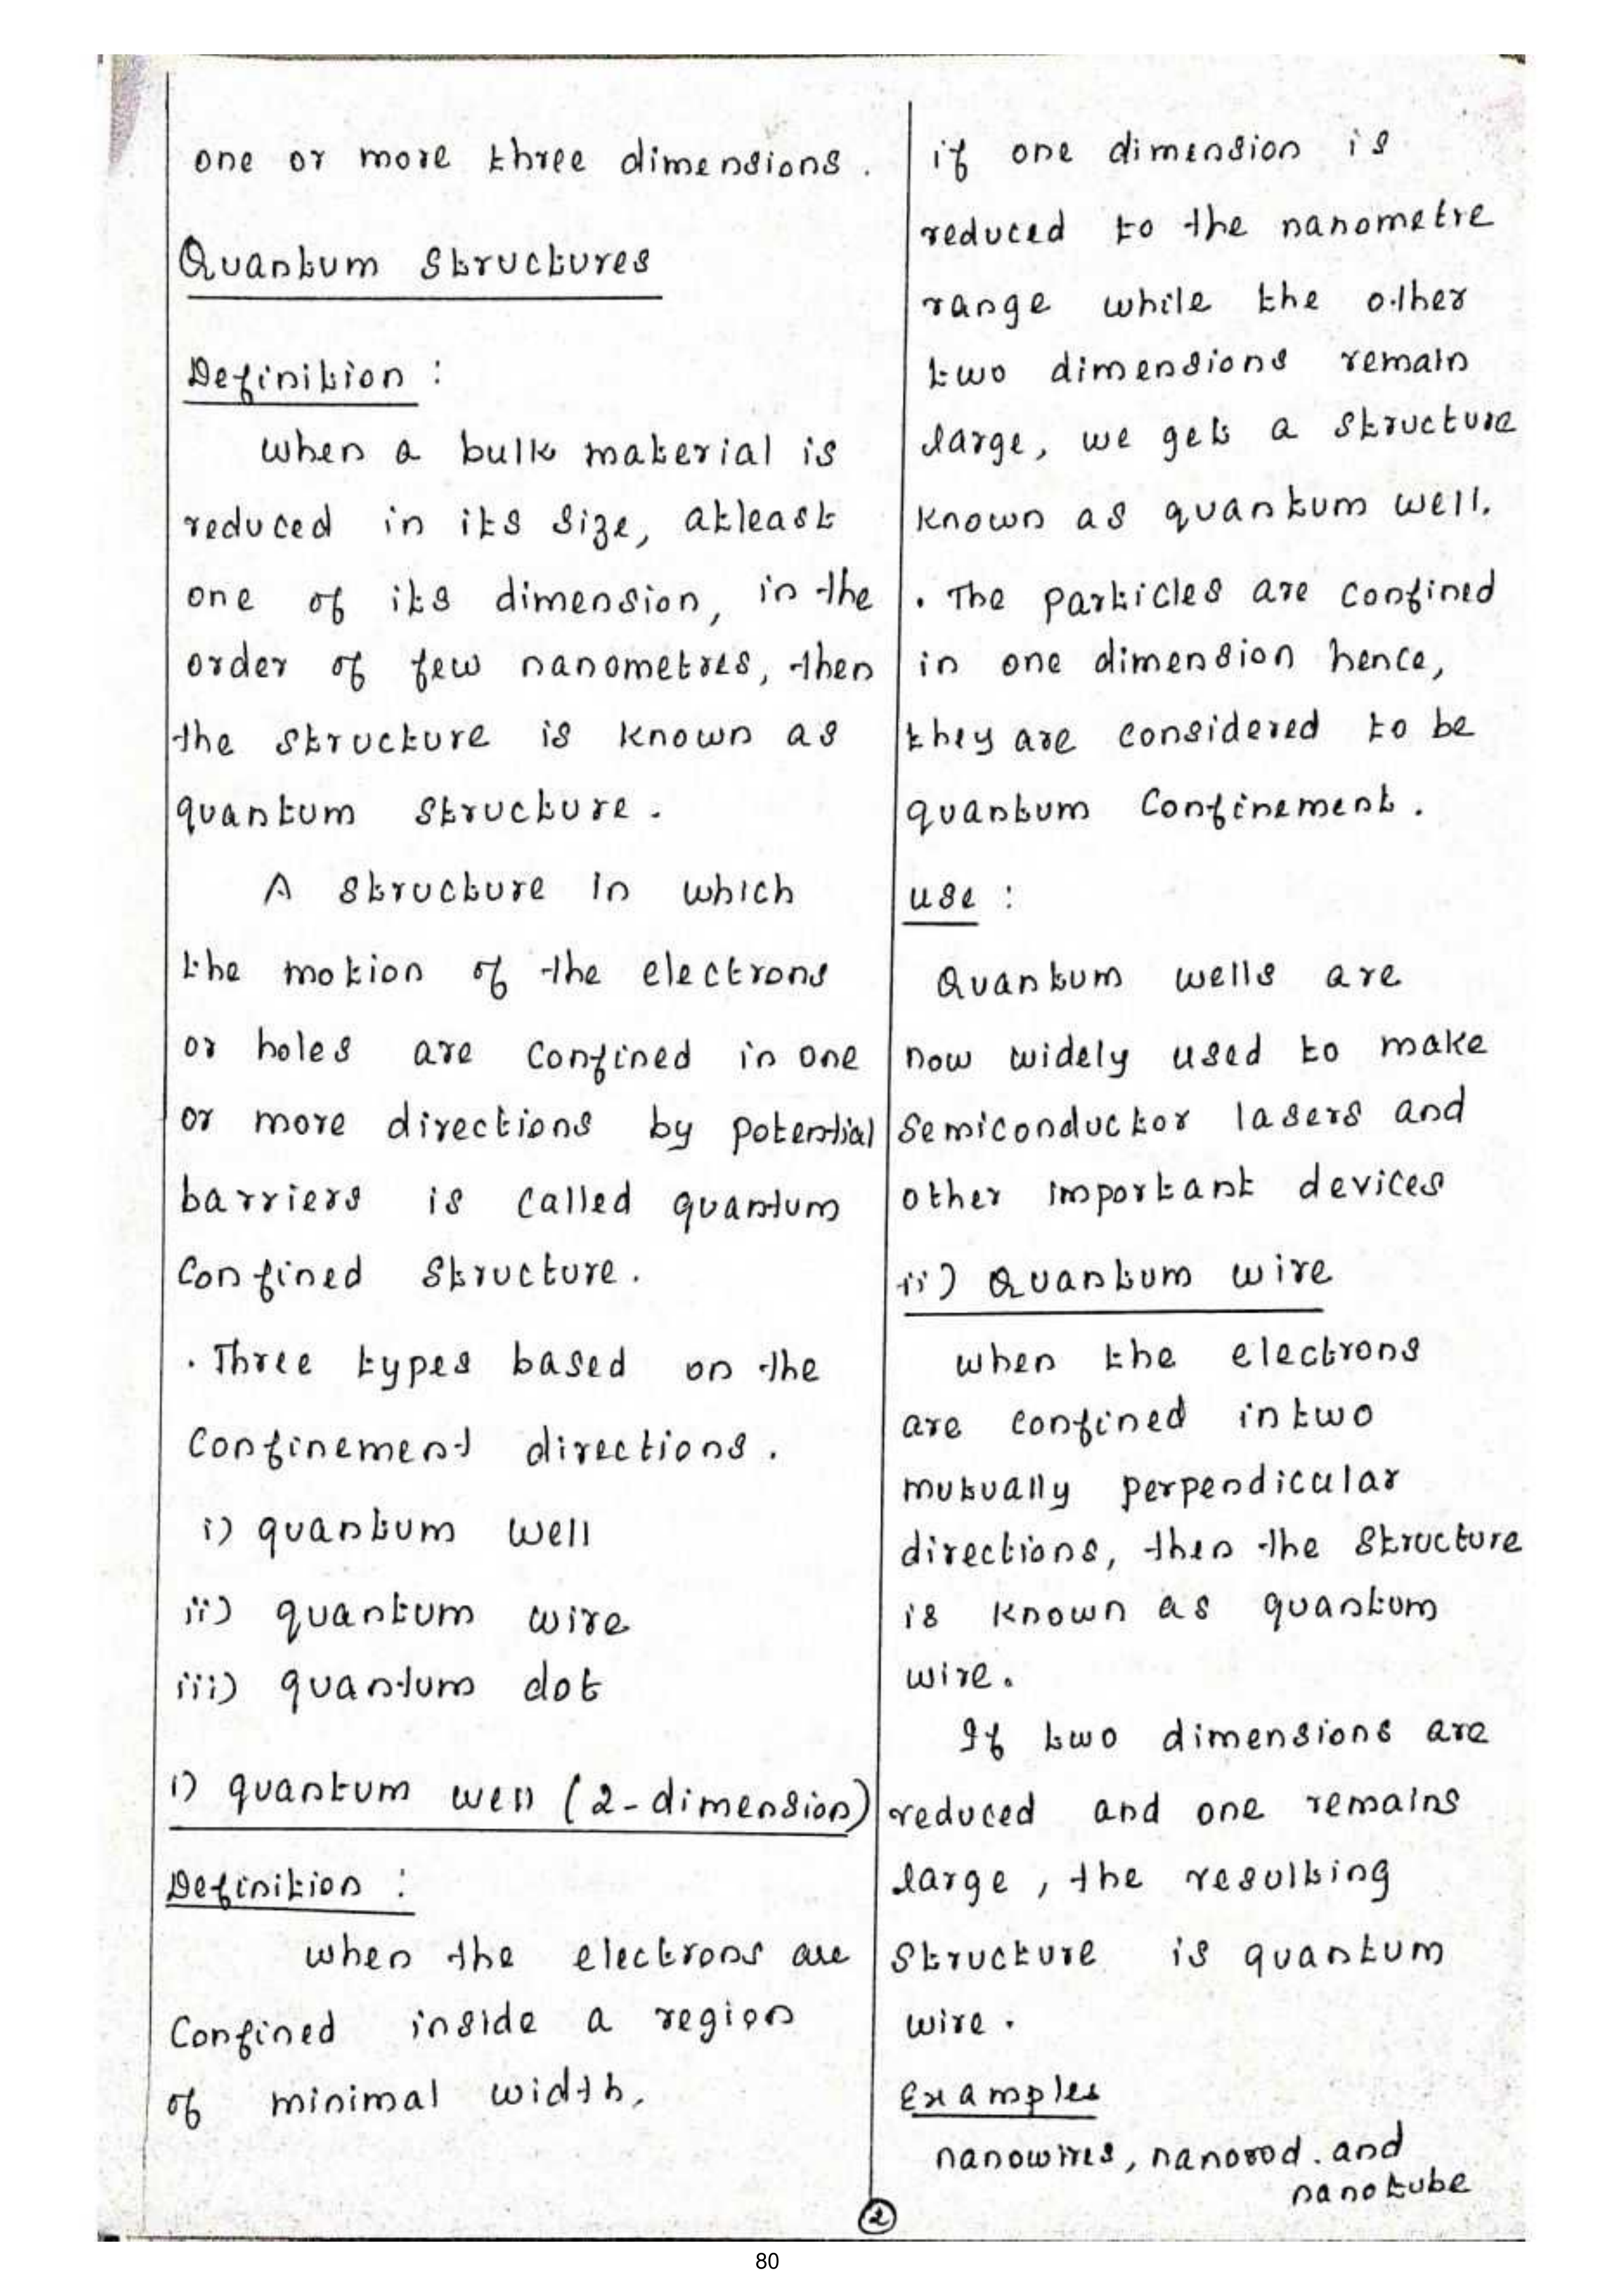 one or more three dimensions.
Quantum Structures
Definition :
when a bulk material is
reduced in its size, atleast
one of its dimension, in the
order of few nanometres, then
the structure is known as
quantum structure.
A structure in which
the motion of the electrons
or holes are confined in one
or more directions by potential
barriers is called quantum
Confined Structure.
. Three types based on the
Confinement directions.
i) quantum well
ii) quantum wire
iii) quantum dot
i) quantum well (2-dimension)
Definition :
when the electrons are
Confined inside a region
of minimal width,
if one dimension is
reduced to the nanometre
range while the other
two dimensions remain
large, we gets a structure
known as quantum well.
. The particles are confined
in one dimension hence,
they are considered to be
quantum Confinement.
use :
Quantum wells are
now widely used to make
semiconductor lasers and
other important devices
ii) Quantum wire
when the electrons
are confined in two
mutually perpendicular
directions, then the structure
is known as quantum
wire.
If two dimensions are
reduced and one remains
large, the resulting
structure is quantum
wire.
Examples
nanowires, nanorod. and
nanotube
2
80